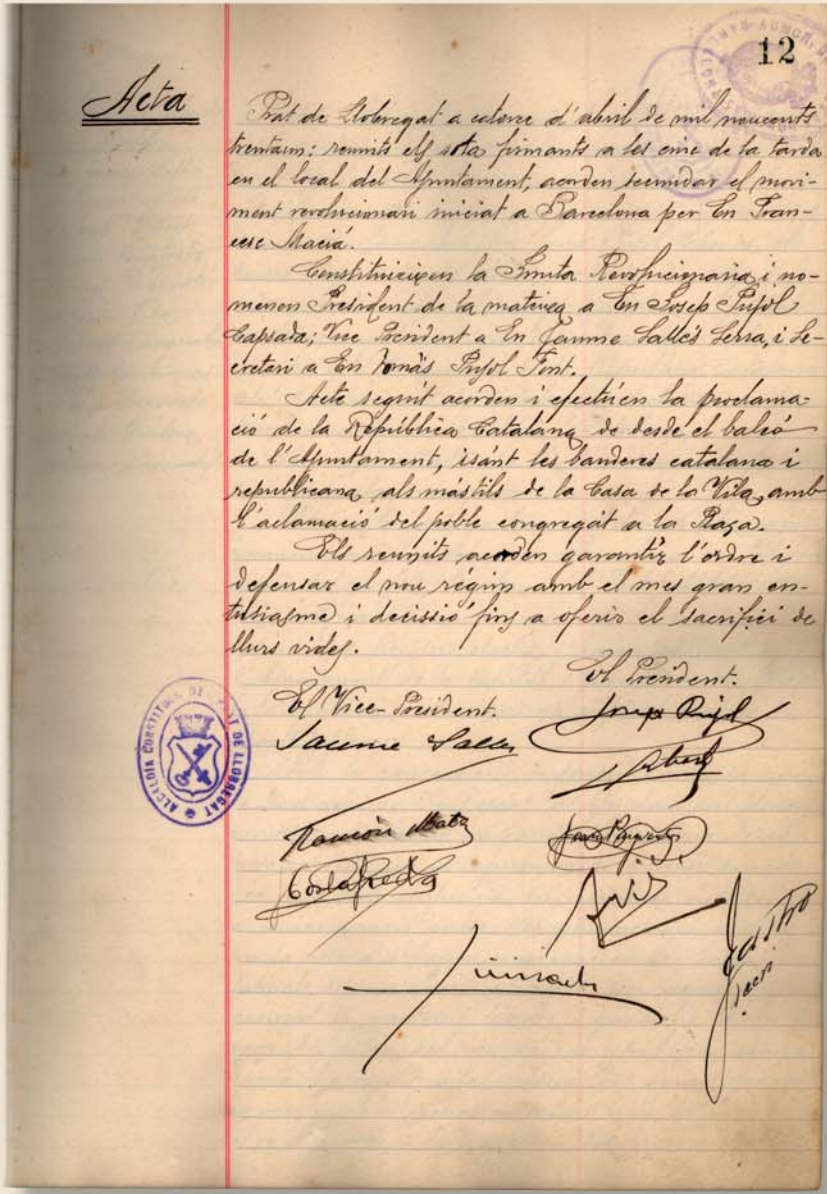 12
Acta
Prat de Llobregat a catorce d'abril de mil noucents
trentaun: reunits els sota firmants a les cinc de la tarda
en el local del Ajuntament, acorden secundar el movi-
ment revolucionari iniciat a Barcelona per En Fran-
cesc Maciá.
Constitueixen la Junta Revolucionaria i no-
menen President de la mateixa a En Josep Pujol
Capsada; Vice President a En Jaume Sallés Serra, i Se-
cretari a En Tomás Pujol Font.
Acte seguit acorden i efectúen la proclama-
ció de la República Catalana de desde el balcó
de l'Ajuntament, isánt les banderes catalana i
republicana als mástils de la Casa de la Vila, amb
l'aclamació del poble congregat a la Plaça.
Els reunits acorden garantir l'ordre i
defensar el nou régim amb el mes gran en-
tusiasme i decissió fins a oferir el sacrifici de
llurs vides.
El President.
El Vice-President.
Josep Pujol
Jaume Salles
Ramón
Castro
ALCALDIA CONSTITUCIONAL DEL PRAT DE LLOBREGAT